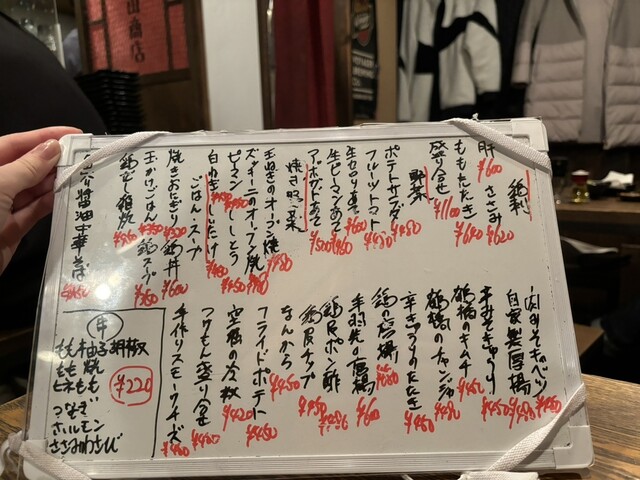 鶏刺
肝 ¥600 ささみ ¥620
ももたたき ¥680
盛り合せ ¥1100
野菜
ポテトサラダ ¥450
フルーツトマト ¥480
生カロリーあて ¥600
生ピーマンあて ¥460
アボカドあて ¥500
焼き野菜
玉ねぎのオーブン焼 ¥480
ズッキーニのオーブン焼
ピーマン ししとう ¥450
白ねぎ しいたけ ¥480
ごはん・スープ
焼きおにぎり ¥350 鶏丼 ¥600
玉かけごはん ¥350 鶏スープ ¥350
鶏だし雑炊
醤油中華そば
肉みそキャベツ ¥450
自家製厚揚 ¥480
辛みそきゅうり ¥450
鶴橋のキムチ ¥450
鶴橋のチャンジャ ¥480
辛きゅうりのたたき ¥450
鶏の唐揚
手羽先の唐揚 ¥600
鶏皮ポン酢
鶏皮チップ ¥450
なんから ¥450
フライドポテト ¥450
空豆 ¥420
つけもん盛り合せ ¥480
手作りスモークチーズ ¥480
串
もも柚子胡椒
もも焼
ヒネもも
つなぎ
ホルモン
ささみわさび
¥220
商店